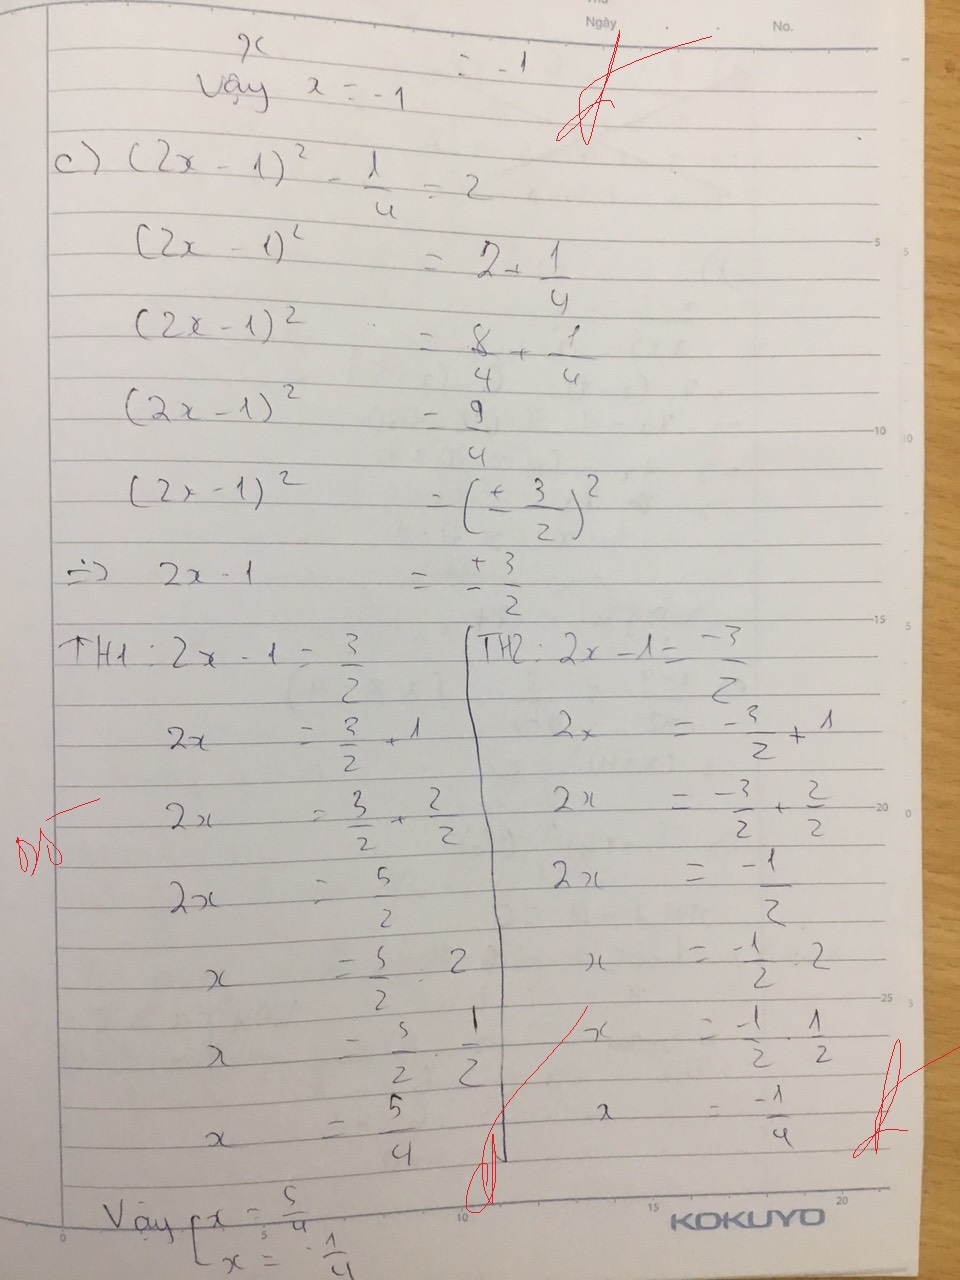 Ngày . . No.
x = -1
Vậy x = -1
c) (2x - 1)² - 1/4 = 2
(2x - 1)² = 2 + 1/4
(2x - 1)² = 8/4 + 1/4
(2x - 1)² = 9/4
(2x - 1)² = (± 3/2)²
=> 2x - 1 = ± 3/2
TH1 : 2x - 1 = 3/2
2x = 3/2 + 1
2x = 3/2 + 2/2
2x = 5/2
x = 5/2 : 2
x = 5/2 . 1/2
x = 5/4
TH2 : 2x - 1 = -3/2
2x = -3/2 + 1
2x = -3/2 + 2/2
2x = -1/2
x = -1/2 : 2
x = -1/2 . 1/2
x = -1/4
Vậy [ x = 5/4
x = -1/4
5
10
15
20
25
0 5 10 15 20
KOKUYO